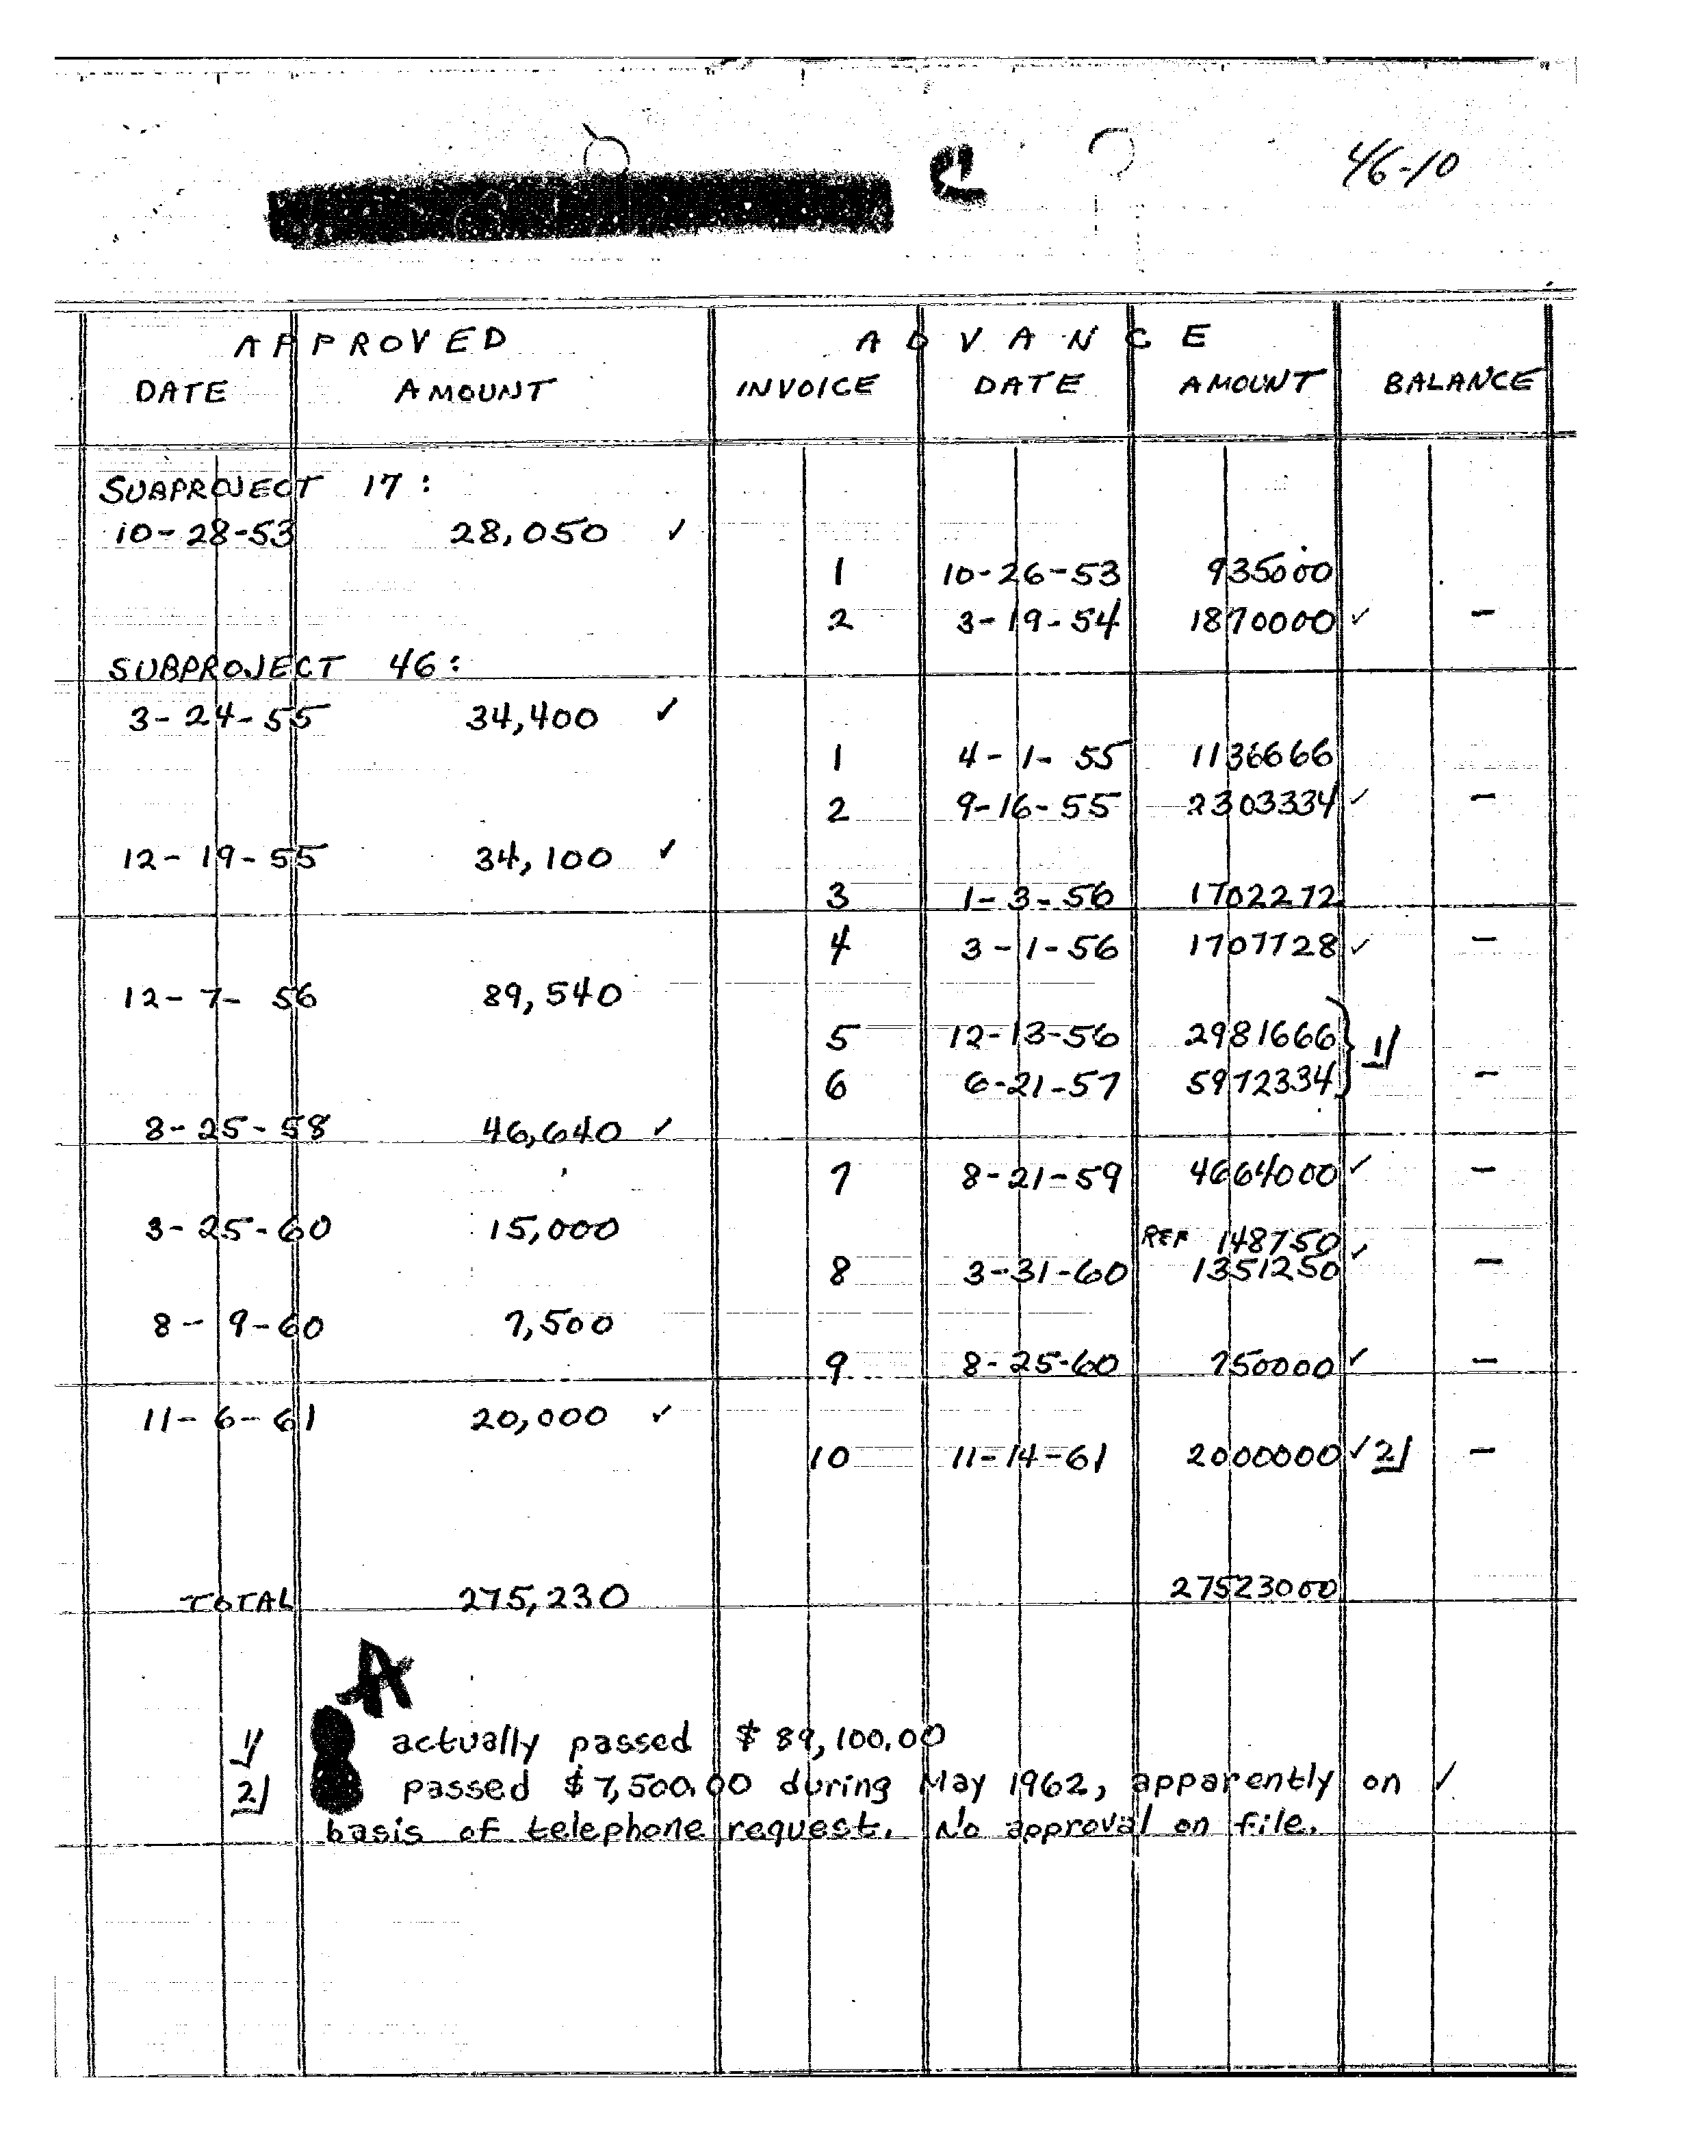 C
46-10
APPROVED ADVANCE
DATE AMOUNT INVOICE DATE AMOUNT BALANCE
SUBPROJECT 17:
10-28-53 28,050 ✓
1 10-26-53 935000
2 3-19-54 1870000 ✓ -
SUBPROJECT 46:
3-24-55 34,400 ✓
1 4-1-55 1136666
2 9-16-55 2303334 ✓ -
12-19-55 34,100 ✓
3 1-3-56 1702272
4 3-1-56 1707728 ✓ -
12-7-56 89,540
5 12-13-56 2981666 } 1/
6 6-21-57 5972334 -
8-25-58 46,640 ✓
7 8-21-59 4664000 ✓ -
3-25-60 15,000
REF 148750
8 3-31-60 1351250 ✓ -
8-9-60 7,500
9 8-25-60 750000 ✓ -
11-6-61 20,000 ✓
10 11-14-61 2000000 ✓ 2/ -
TOTAL 275,230 27523000
A
1/ actually passed $89,100.00
2/ passed $7,500.00 during May 1962, apparently on ✓
basis of telephone request. No approval on file.